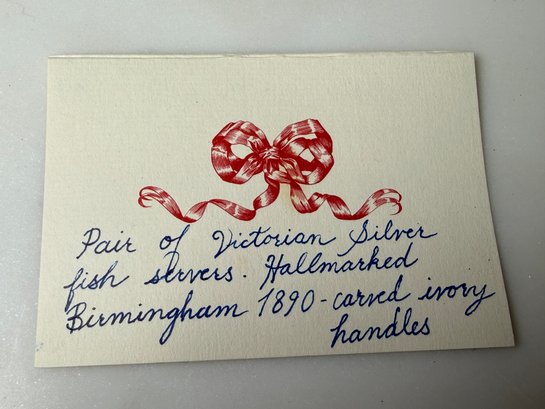 Pair of Victorian Silver
fish servers. Hallmarked
Birmingham 1890-carved ivory
handles